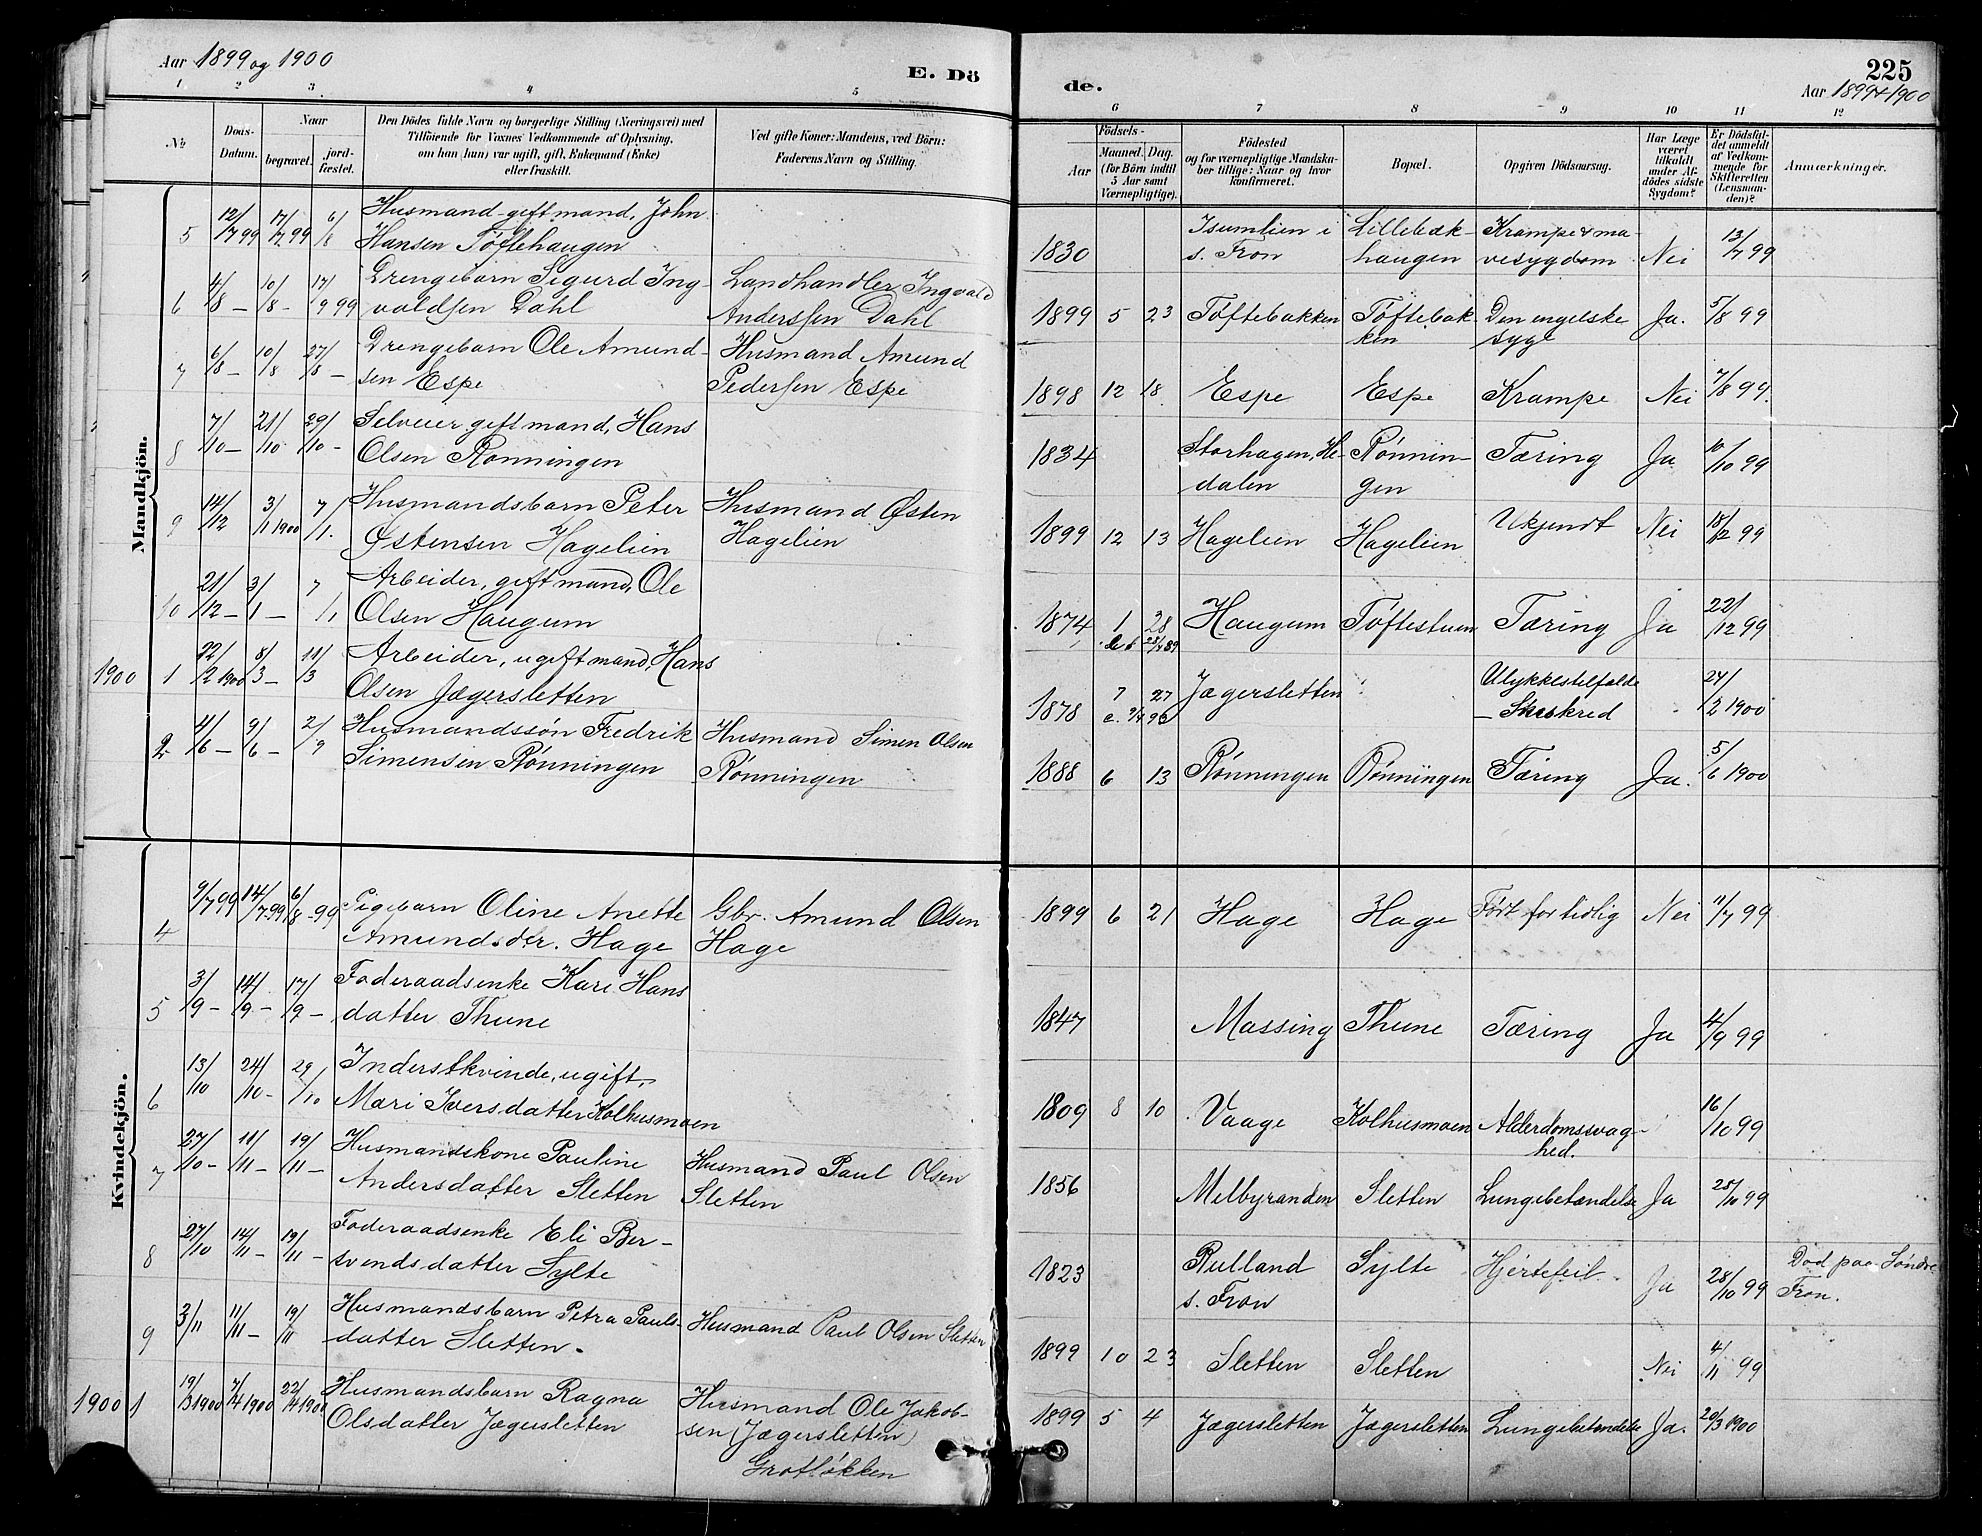 Aar 1899 og 1900
E. Dö
1 2 3. 4 5
№
Döds-Datum.
Naar
begravet.
jord-fæstet.
Den Dödes fulde Navn og borgerlige Stilling (Næringsvei) med
Tilföiende for Voxnes Vedkommende af Oplysning,
om han (hun) var ugift, gift, Enkemand (Enke)
eller fraskilt.
Ved gifte Koner: Mandens, ved Börn:
Faderens Navn og Stilling.
Mandkjön.
5 12/7 99 17/7 99 6/8 Husmand gift mand, John
Hansen Tøftehaugen
6 4/8 — 10/8 - 17/9 99 Drengebarn Sigurd Ing- Landhandler Ingvald
valdsen Dahl Anderssen Dahl
7 6/8 — 10/8 27/8 — Drengebarn Ole Amund- Husmand Amund
sen Espe Pedersen Espe
8 7/10 — 21/10 29/10 - Selveier gift mand, Hans
Olsen Rønningen
9 14/12 3/1 1900 7/1. Husmandsbarn Peter Husmand Østen
Østensen Hagelien Hagelien
10 21/12 — 3/1 — 7/1 Arbeider, gift mand, Ole
Olsen Haugum
1900 1 22/2 1900 8/3 — 11/3 Arbeider, ugift mand, Hans
Olsen Jægersletten
2 4/6 — 9/6 — 2/9 Husmandssøn Fredrik Husmand Simen Olsen
Simensen Rønningen Rønningen
Kvindekjön.
4 9/7 99 14/7 99 6/8 - 99 Pigebarn Oline Anette Gbr. Amund Olsen
Amundsdtr. Hage Hage
5 3/9 — 14/9 — 17/9 — Føderaadsenke Kari Hans
datter Thune
6 13/10 24/10 - 29/10 Inderstkvinde, ugift,
Mari Iversdatter Kolhusmoen
7 27/10 — 11/11 — 19/11 — Husmandskone Pauline Husmand Paul Olsen
Andersdatter Sletten Sletten
8 27/10 14/11 — 19/11 — Føderaadsenke Eli Ber-
svendsdatter Sylte
9 3/11 11/11 — 19/11 Husmandsbarn Petra Pauls- Husmand Paul Olsen Sletten
datter Sletten -
1900 1 19/3 1900 7/4 1900 22/4 1900 Husmandsbarn Ragna Husmand Ole Jakob-
Olsdatter Jægersletten sen (Jægersletten)
Grotløkken
de.
225
Aar 1899 & 1900
6 7 8 9 10 11 12
Födsels-
Aar
Maaned. Dag.
(for Börn indtil
5 Aar samt
Værnepligtige).
Födested
og for værnepligtige Mandska-
ber tillige: Naar og hvor
konfirmeret.
Bopæl.
Opgiven Dödsaarsag.
Har Læge
været
tilkaldt
under Af-
dödes sidste
Sygdom?
Er Dödsfal-
det anmeldt
af Vedkom-
mende for
Skifteretten
(Lensman-
den)?
Anmærkninger.
1830 Isumlien i Lillebæk- Krampe & ma- Nei 13/7 99
s. Fron haugen vesygdom
1899 5 23 Tøftebakken Tøftebak- Den engelske Ja. 5/8 99
ken syge
1898 12 18 Espe Espe Krampe Nei 7/8 99.
1834 Storhagen, He- Rønnin- Tæring Ja 10/10 99
dalen gen
1899 12 13 Hagelien Hagelien Ukjendt Nei 18/12 99
1874 1 28 Haugum Tøftestuen Tæring Ja 22/12 99
1878 7 27 Jægersletten Ulykkestilfælde 24/2 1900
— Sneskred
1888 6 13 Rønningen Rønningen Tæring Ja. 5/6 1900
1899 6 21 Hage Hage Født for tidlig Nei 11/7 99
1847 Massing Thune Tæring Ja 4/9 99
1809 8 10 Vaage Kolhusmoen Alderdomssvag- 16/10 99
hed.
1856 Melbyranden Sletten Lungebetændelse Ja 28/10 99
1823 Rulland Sylte Hjertefeil. Ja 28/10 99 Død paa Søndre
s. Fron Fron.
1899 10 23 Sletten Sletten Nei 4/11 99
1899 5 4 Jægersletten Jægersletten Lungebetændelse Ja. 20/3 1900